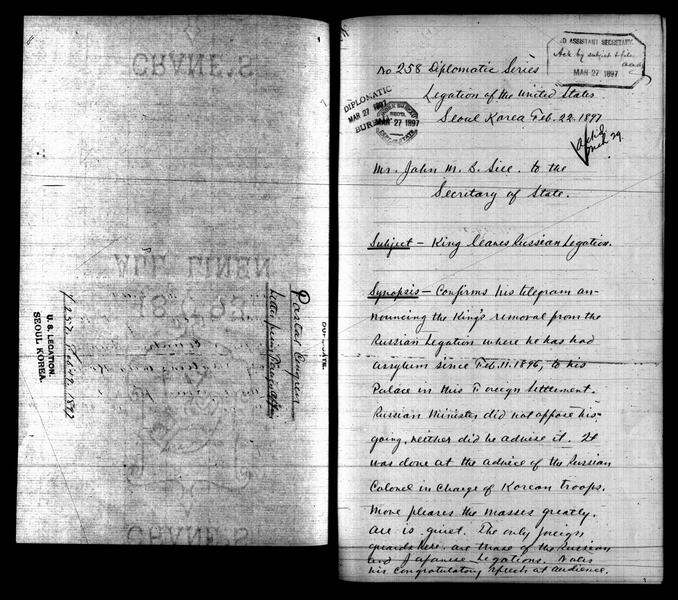 CRANE'S
ALL LINEN
CRANE'S
Postal Congress
U. S. LEGATION.
SEOUL KOREA.
No 258 Diplomatic Series
Legation of the United States
Seoul Korea Feb. 22. 1897
ASSISTANT SECRETARY
Ack by subject & file
MAR 27 1897
DIPLOMATIC
MAR 27 1897
BUREAU
MAR 27 1897
Ackd
Mch 29.
Mr. John M. B. Sill. to the
Secretary of State.
Subject – King leaves Russian Legation.
Synopsis – Confirms his telegram an-
nouncing the King's removal from the
Russian Legation where he has had
assylum since Feb. 11. 1896, to his
Palace in this Foreign Settlement.
Russian Minister did not oppose his
going, neither did he advise it. It
was done at the advice of the Russian
Colonel in charge of Korean troops.
Move pleases the masses greatly.
All is quiet. The only foreign
guards here are those of the Russian
and Japanese Legations. Notes
his congratulatory speech at audience.